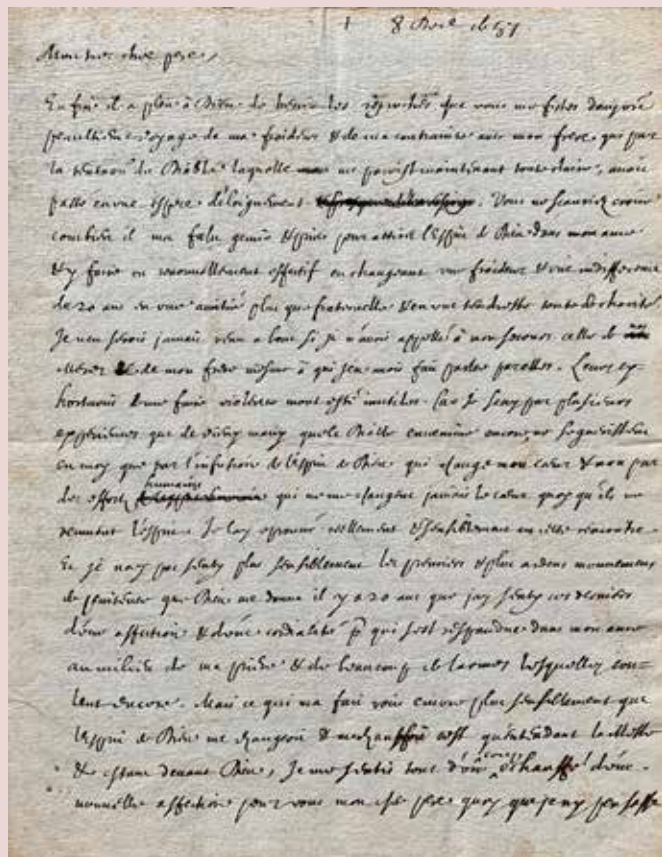 1 8 1657
Mon tres cher pere,
Enfin il a pleu à Dieu de benir les reproches que vous me fistes
voyage de ma froideur & de ma contrainte avec mon frere, qui par
la du Diable laquelle me paroist maintenant toute claire, avoit
passé en une espece d'éloignement. Vous ne sçauriez croire
combien il m'a fallu gemir & prier pour attirer l'Esprit de Dieu dans mon ame
& y faire un renouvellement effectif en changeant une froideur & une indifference
de 20 ans en une amitié plus que fraternelle & en une tendresse toute de charité
Je n'en serois jamais venu a bout si je n'avois appellé à mon secours celles de
Meres & de mon frere mesme à qui j'en avois fait parler. Leurs ex-
hortations & me faire violence m'ont esté inutiles. Car je sçay par plusieurs
experiences que de vieux maux que le Diable envenime encore, ne se guerissent
en moy que par l'infusion de l'Esprit de Dieu qui change mon cœur & non par
des efforts humains qui ne me changent jamais le cœur quoy qu'ils me
l'esprit. Je l'ay eprouvé reellement & sensiblement en cette rencontre.
Et je n'ay pas senty plus sensiblement les premiers & plus ardens mouvemens
de penitence que Dieu me donna il y a 20 ans que j'ay senty ces derniers
d'une affection & d'une cordialité qui s'est respandue dans mon ame
au milieu de ma priere & de beaucoup de larmes lesquelles cou-
lent encore. Mais ce qui m'a fait voir encore plus sensiblement que
l'Esprit de Dieu me changeoit & m'echauffoit c'est qu'entendant la Messe
& estant devant Dieu, Je me sentis tout d'un coup échauffé d'une
nouvelle affection pour vous mon cher pere quoy que je n'y pensasse